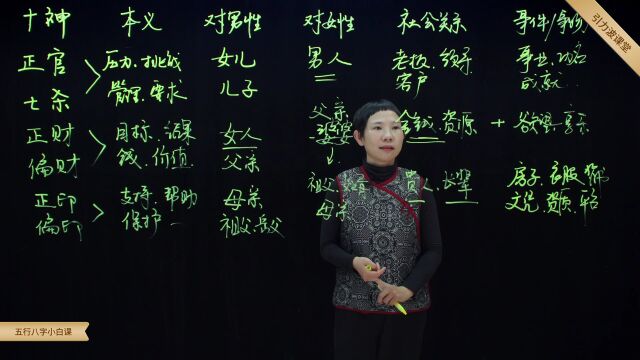 引力波课堂
十神 本义 对男性 对女性 社会关系 事件/事物
正官 压力、挑战 女儿 男人 老板、领导 事业、功名
七杀 管理、要求 儿子 客户 成就
正财 目标、结果 女人 父亲 金钱、资源 + 欲望、享乐
偏财 钱、价值 父亲 婆婆
正印 支持、帮助 母亲 祖父 贵人、长辈 房子、衣服
偏印 保护 祖父、岳父 母亲 文凭
五行八字小白课